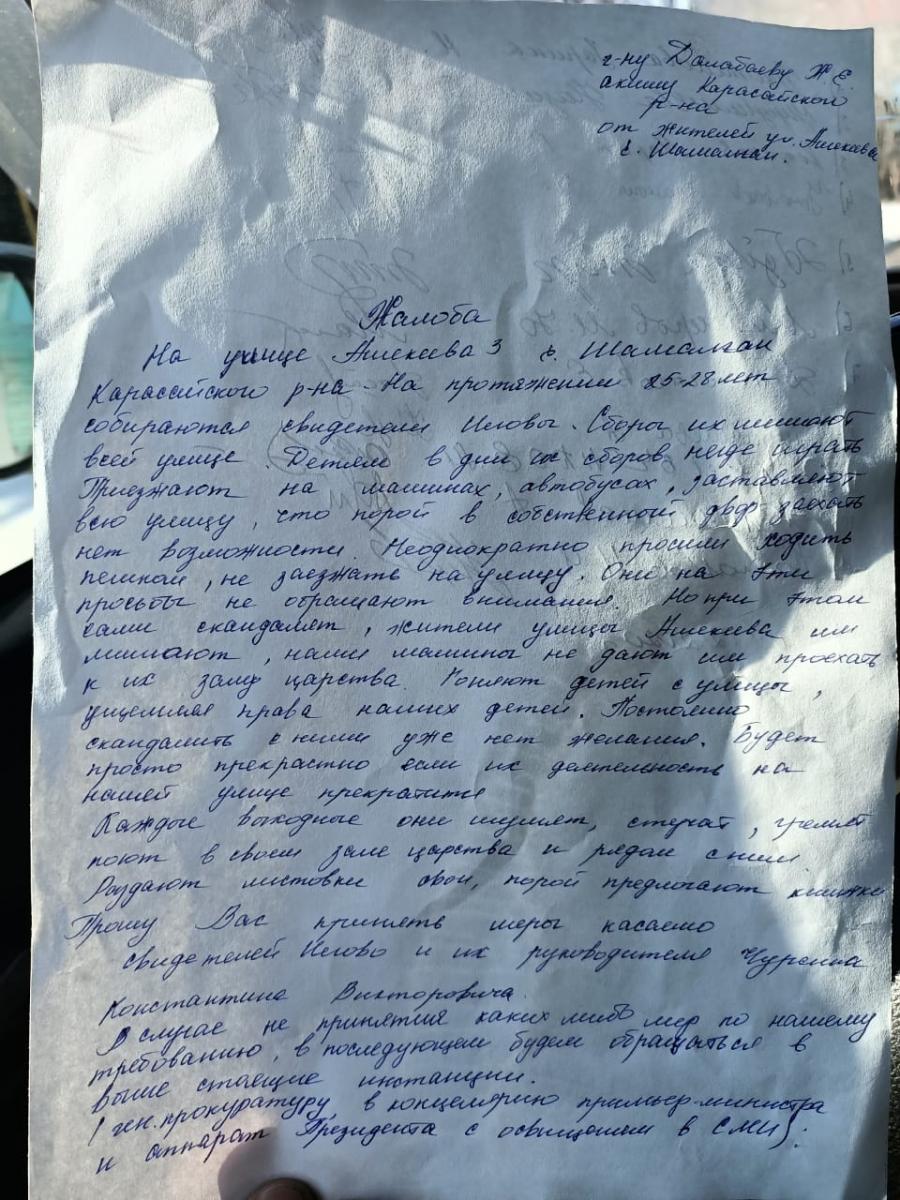 г-ну Далабаеву Ж Е.
акиму Карасайского
р-на
от жителей ул. Алексеева
с. Шамалган.
Жалоба
На улице Алексеева 3 с. Шамалган
Карасайского р-на. На протяжении 25-28 лет
собираются свидетели Иеговы. Сборы их мешают
всей улице. Детям в дни их сборов негде играть
Приезжают на машинах, автобусах, заставляют
всю улицу, что порой в собственный двор заехать
нет возможности. Неоднократно просили ходить
пешком, не заезжать на улицу. Они на эти
просьбы не обращают внимания. Но при этом
сами скандалят, жители улицы Алексеева им
мешают, наши машины не дают им проехать
к их залу царства. Гоняют детей с улицы,
ущемляя права наших детей. Постоянно
скандалить с ними уже нет желания. Будет
просто прекрастно если их деятельность на
нашей улице прекратится
Каждые выходные они шумят, стучат, гремят
поют в своем зале царства и рядом с ним
Раздают листовки свои, порой предлогают книжки
Прошу Вас принять меры касаемо
свидетелей Иегово и их руководителя
Константина Викторовича.
В случае не принятия каких либо мер по нашему
требованию, в последующем будем обращаться в
выше стоящие инстанции.
(ген.прокуратуру, в концелярию примьер-министра
и аппарат Президента с освищением в СМИ).